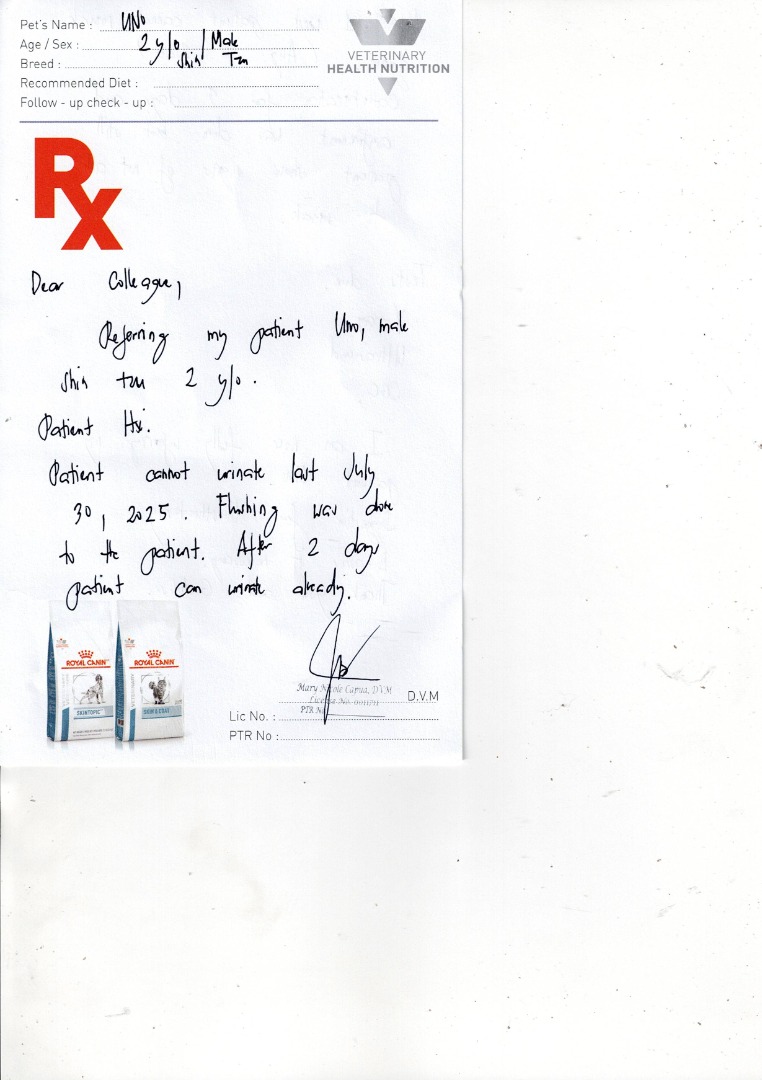 Pet's Name : UNO
Age / Sex : 2 y/o / Male
Breed : Shih Tzu
Recommended Diet :
Follow - up check - up :
VETERINARY
HEALTH NUTRITION
Rx
Dear Colleague,
Referring my patient Uno, male
shih tzu 2 y/o.
Patient Hx.
Patient cannot urinate last July
30, 2025. Flushing was done
to the patient. After 2 days
patient can urinate already.
ROYAL CANIN
SKINTOPIC
ROYAL CANIN
SKIN & COAT
Mary Nicole Capua, D.V.M
D.V.M
License No.
PTR
Lic No. :
PTR No :